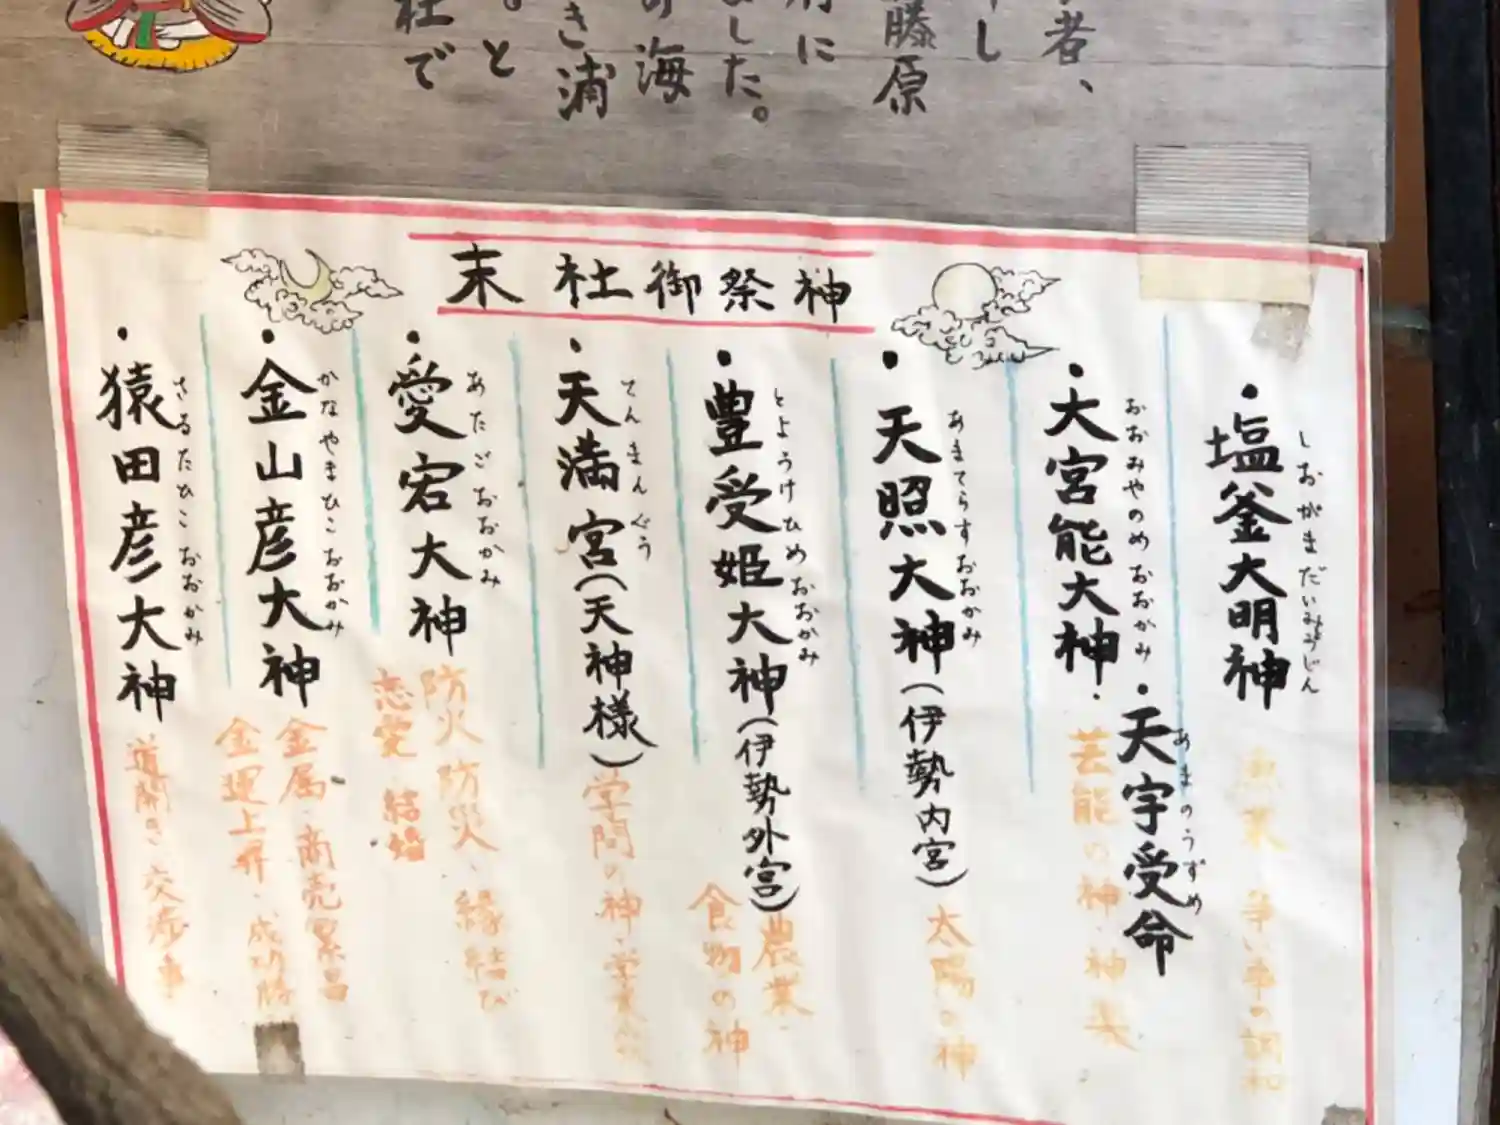 者、
し
藤原
に
した。
の海
き浦
。と
社で
末社御祭神
・塩釜大明神
しおがまだいみょうじん
漁業 争い事の調和
・大宮能大神
おおみやのめおおかみ
・天宇受命
あまのうずめ
芸能の神・神表
・天照大神(伊勢内宮)
あまてらすおおかみ
太陽の神
・豊受姫大神(伊勢外宮)
とようけひめおおかみ
農業・
食物の神
・天満宮(天神様)
てんまんぐう
学問の神・学業
・愛宕大神
あたごおおかみ
防火防災、縁結び
恋愛・結婚
・金山彦大神
かなやまひこおおかみ
金属・商売繁昌
金運上昇・成功勝
・猿田彦大神
さるたひこおおかみ
道開き・交